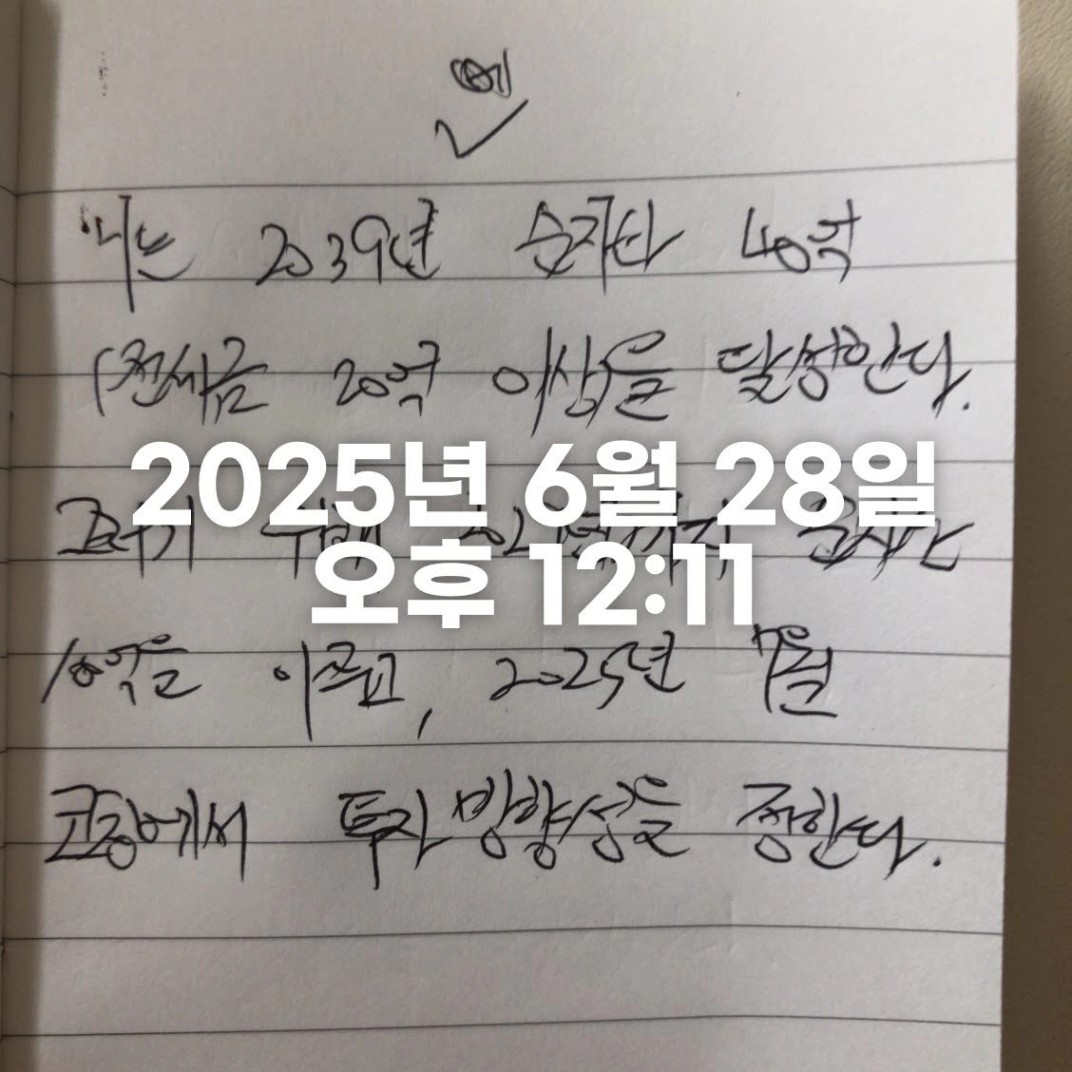 나는 2039년 순자산 40억
(전세금 20억 이상)을 달성한다.
2025년 6월 28일
오후 12:11
10억을 이루고, 2025년 7월
코칭에서 투자방향성을 정한다.